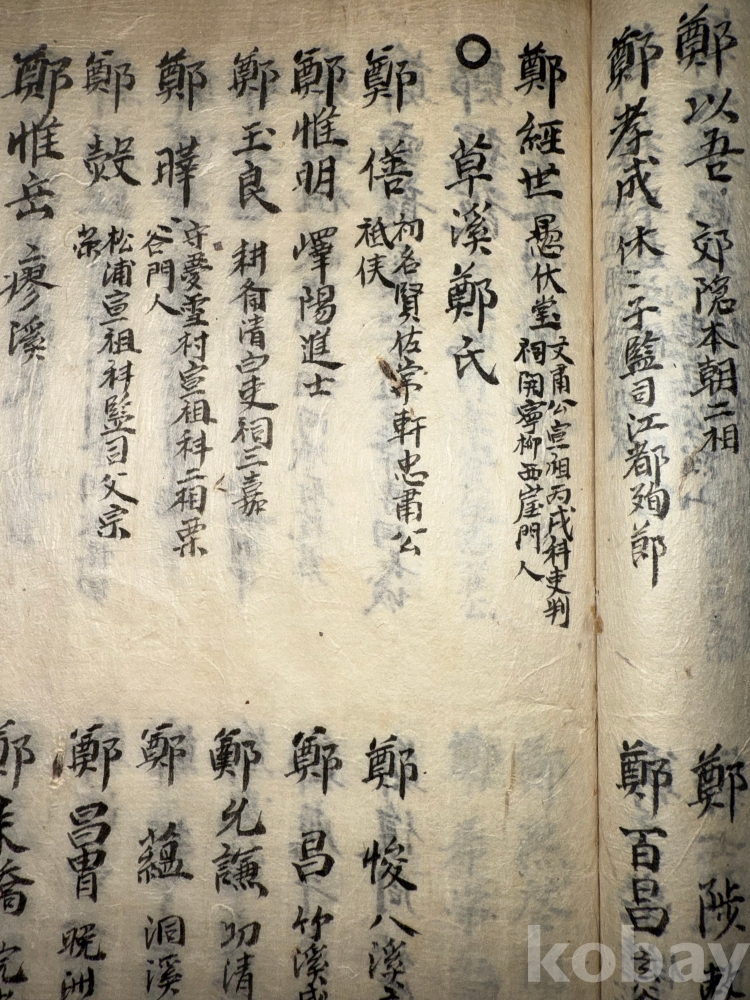 鄭以吾 郊隱本朝二相
鄭孝成 休〻子監司江都殉節
鄭經世 愚伏堂
文肅公宣祖丙戌科吏判
祠開寧柳西崖門人
○草溪鄭氏
鄭僐
初名賢佐常軒忠肅公
祗侠
鄭惟明 嶧陽進士
鄭玉良 耕齋清白吏祠三嘉
鄭曄
守夢雪村宣祖科二相栗
谷門人
鄭㷤
松浦宣祖科監司父宗
榮
鄭惟岳 癭溪
鄭陟
鄭百昌 玄
鄭悛 八溪
鄭昌 竹溪
鄭允謙 功清
鄭蘊 洞溪
鄭昌胄 晩洲
鄭
kobay